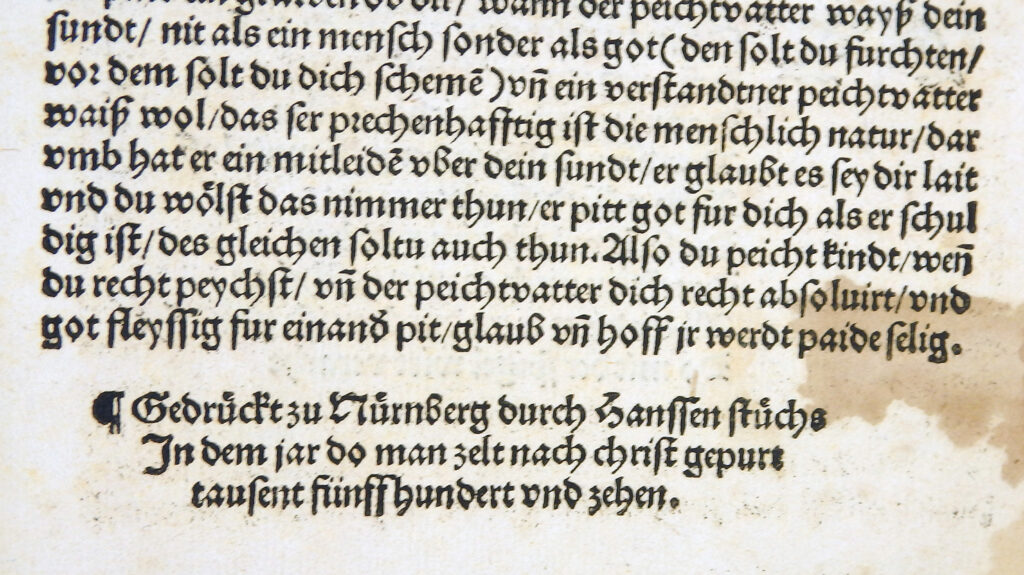 wann der peichtvatter wayß dein
sundt/ nit als ein mensch sonder als got( den solt du furchten/
vor dem solt du dich schemē ) vn̄ ein verstandtner peichtvatter
waiß wol/das ser prechenhafftig ist die menschlich natur/dar
vmb hat er ein mitleidē vber dein sundt/er glaubt es sey dir lait
vnd du wölst das nimmer thun/er pitt got fur dich als er schul
dig ist/des gleichen soltu auch thun. Also du peicht kindt/wen̄
du recht peychst/ vn̄ der peichtvatter dich recht absoluirt/vnd
got fleyssig fur einand̄ pit/glaub vn̄ hoff jr werdt paide selig.
¶ Gedrückt zu Nürnberg durch Hanssen stüchs
In dem jar do man zelt nach christ gepurt
tausent fünff hundert vnd zehen.